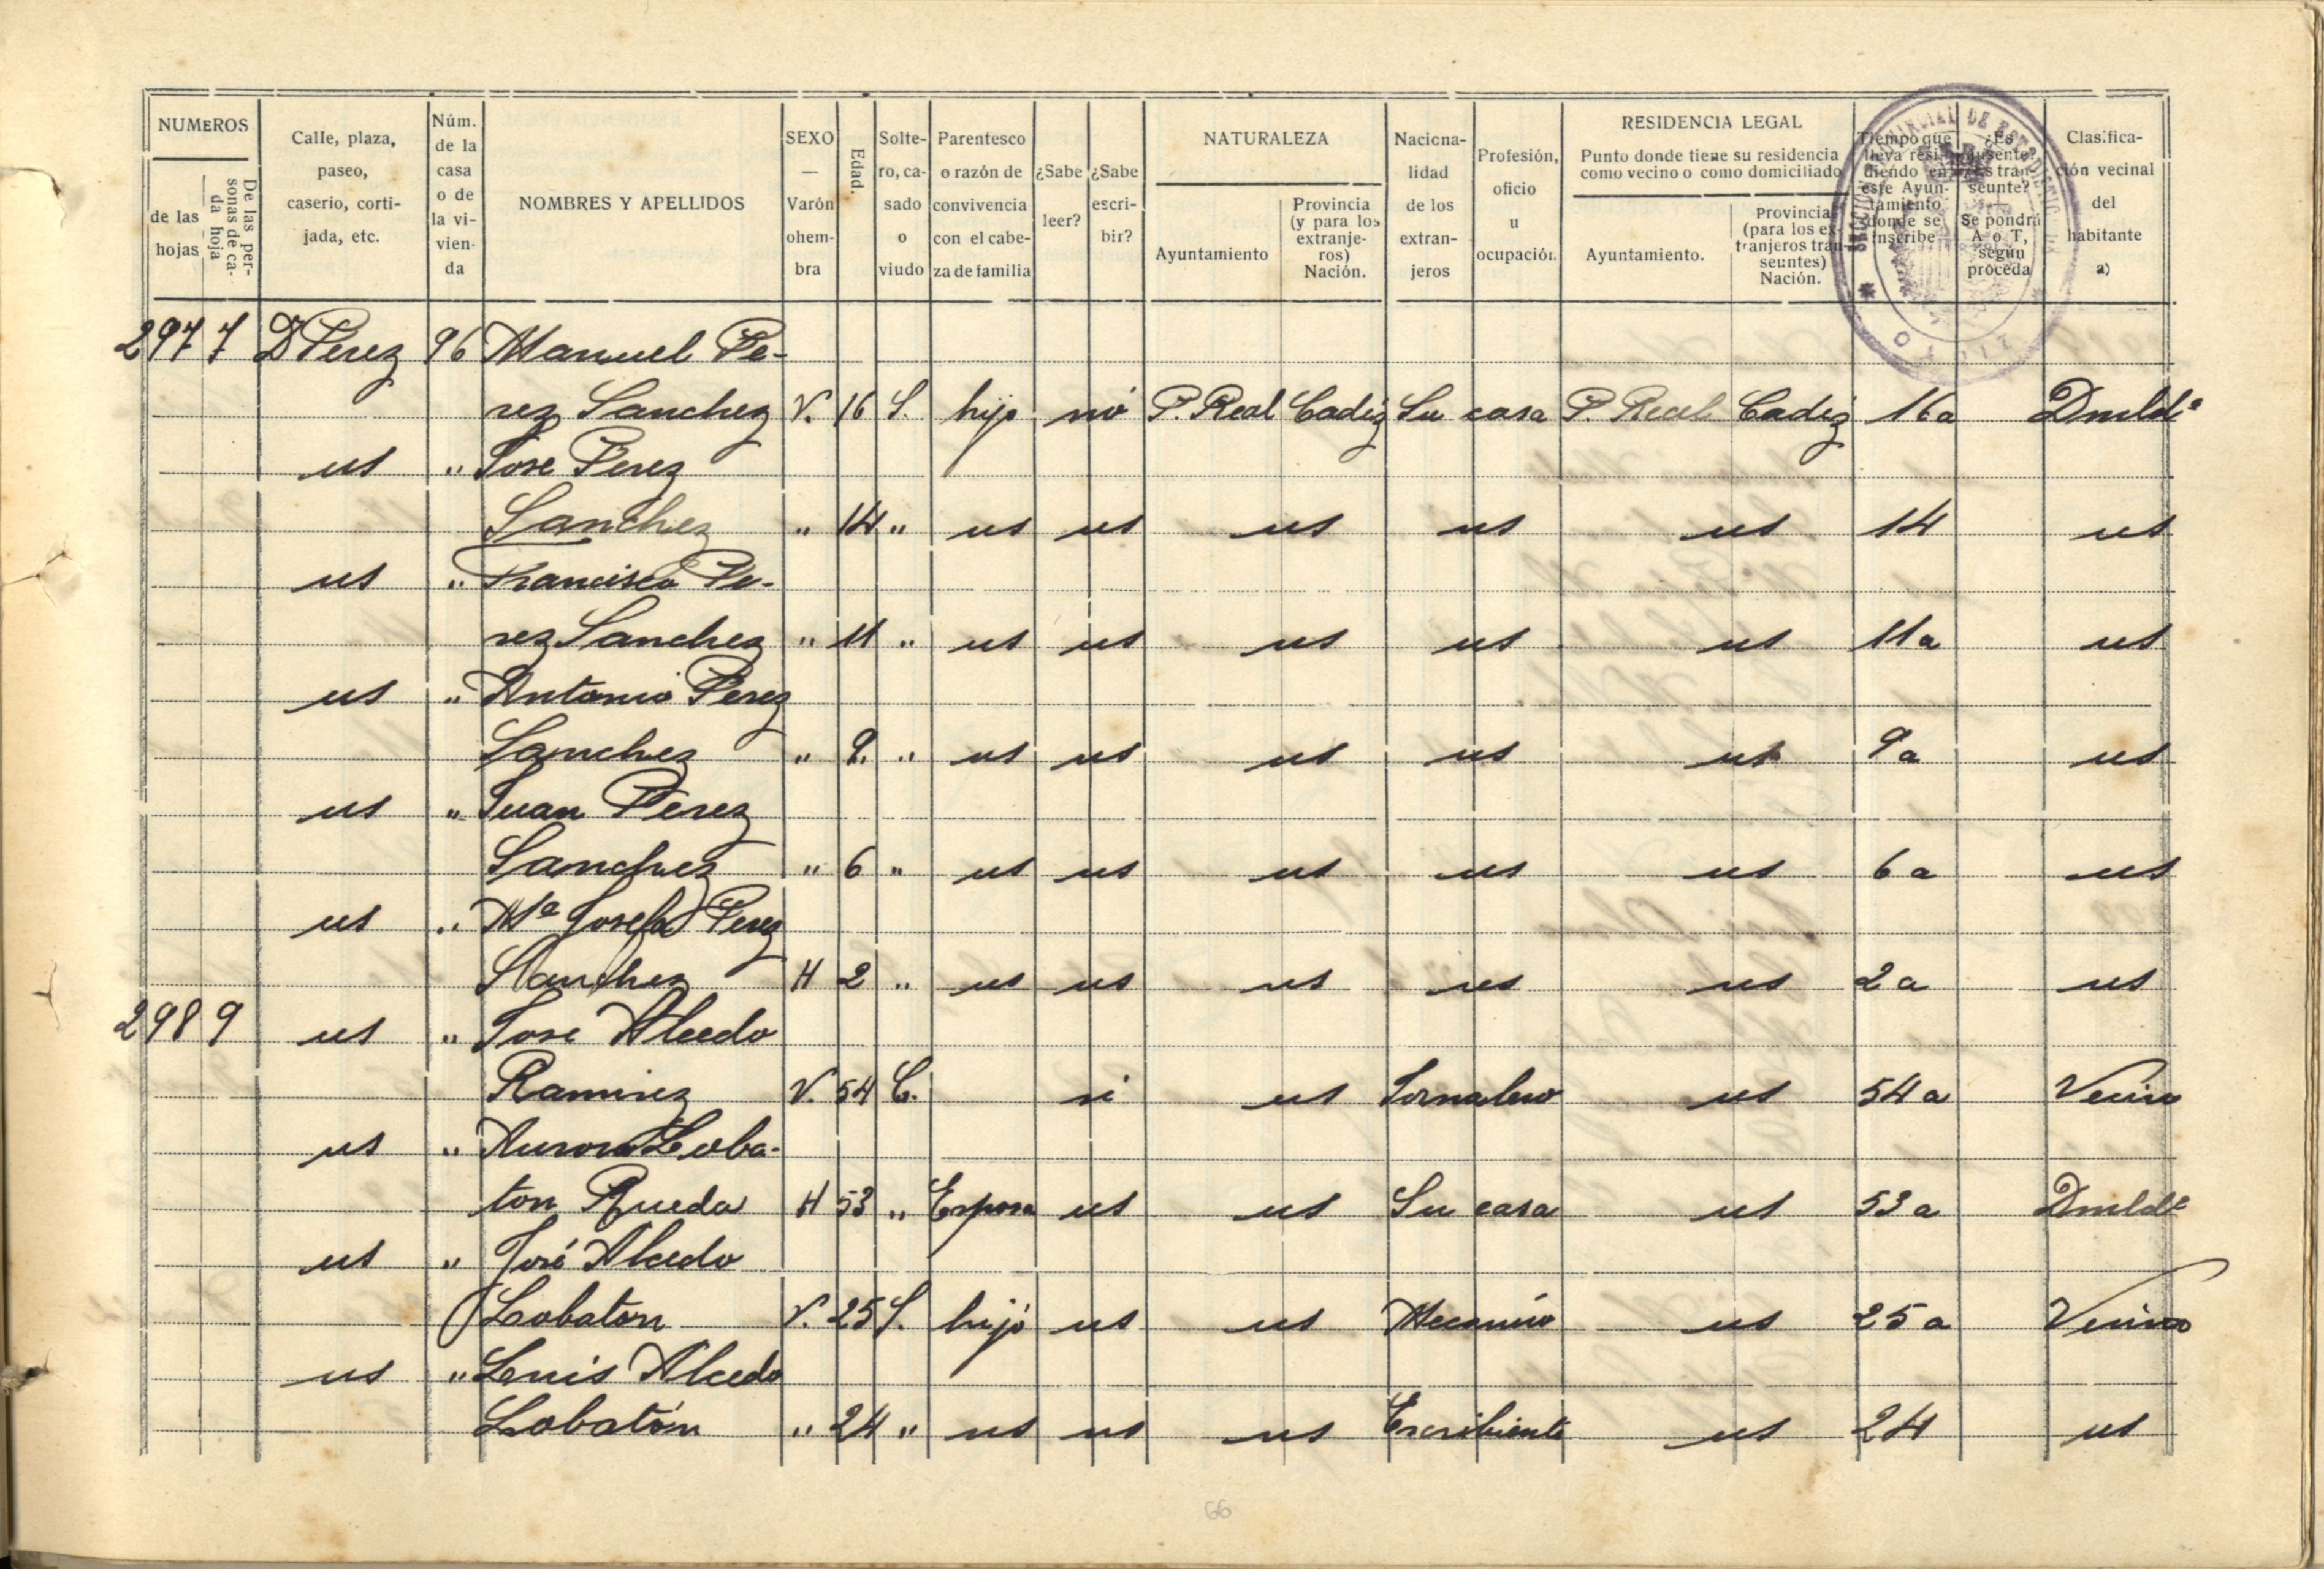 NUMEROS
de las hojas
De las personas de cada hoja
Calle, plaza, paseo, caserío, cortijada, etc.
Núm. de la casa o de la vivienda
NOMBRES Y APELLIDOS
SEXO — Varón o hembra
Edad.
Soltero, casado o viudo
Parentesco o razón de convivencia con el cabeza de familia
¿Sabe leer?
¿Sabe escribir?
NATURALEZA
Ayuntamiento
Provincia (y para los extranjeros) Nación.
Nacionalidad de los extranjeros
Profesión, oficio u ocupación.
RESIDENCIA LEGAL
Punto donde tiene su residencia como vecino o como domiciliado
Ayuntamiento.
Provincia (para los extranjeros transeuntes) Nación.
Tiempo que lleva residiendo en este Ayuntamiento donde se inscribe
¿Es ausente? ¿Es transeunte? Se pondrá A o T, según proceda
Clasificación vecinal del habitante a)
CADIZ
297 7 D Perez 96 Manuel Pe-
rez Sanchez V. 16 S. hijo nó P. Real Cadiz Su casa P. Real Cadiz 16 a Dmldo
us " Jose Perez
Sanchez " 14 " us us us us us 14 us
us " Francisco Pe-
rez Sanchez " 11 " us us us us us 11 a us
us " Antonio Perez
Sanchez " 9. " us us us us us 9 a us
us " Juan Perez
Sanchez " 6 " us us us us us 6 a us
us " Mª Josefa Perez
Sanchez H 2 " us us us us us 2 a us
298 9 us " Jose Alcedo
Ramirez V. 54 C. si us Jornalero us 54 a Vecino
us " Aurora Loba-
ton Rueda H 53 " Esposa us us Su casa us 53 a Dmlda
us " José Alcedo
Lobaton V. 25 S. hijo us us Mecanico us 25 a Vecino
us " Luis Alcedo
Lobatón " 24 " us us us Escribiente us 24 us
66